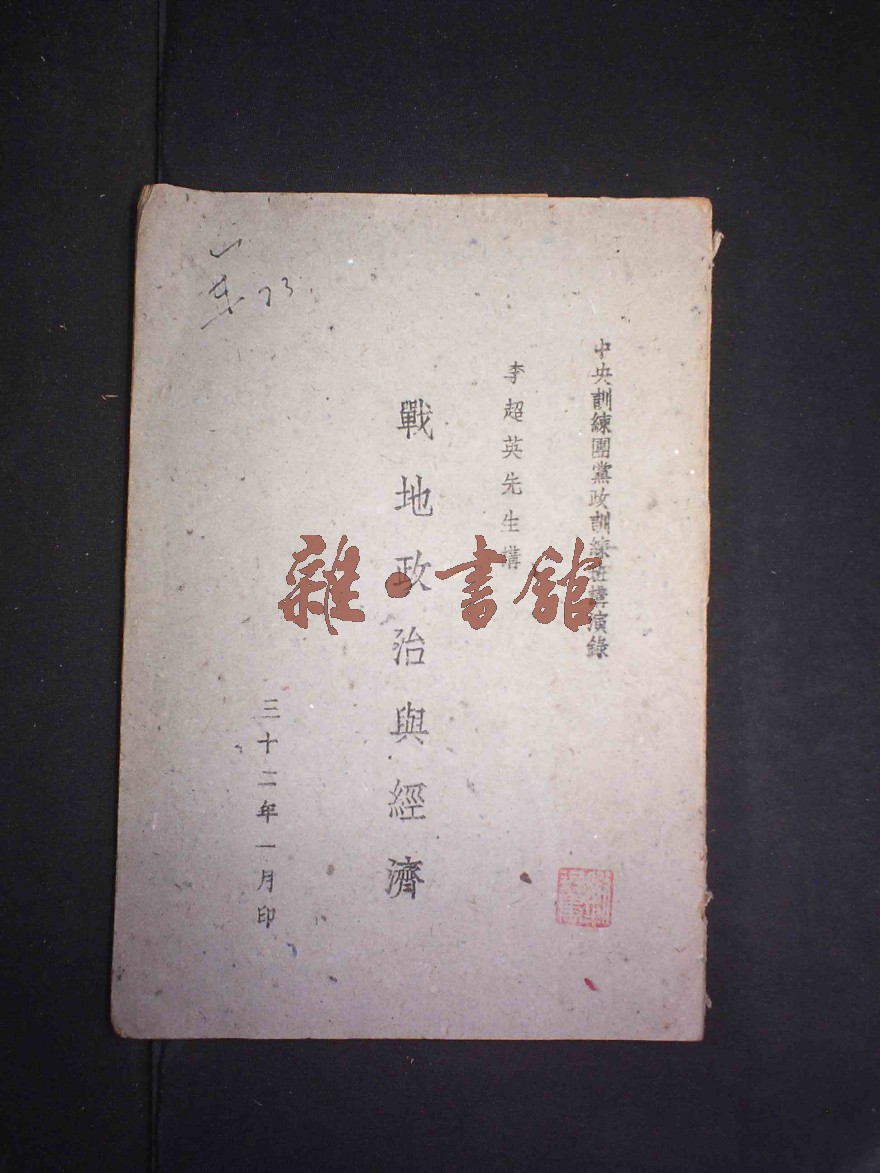 中央訓練團黨政訓練班講演錄
李超英先生講
戰地政治與經濟
三十二年一月印
73
雜·書館